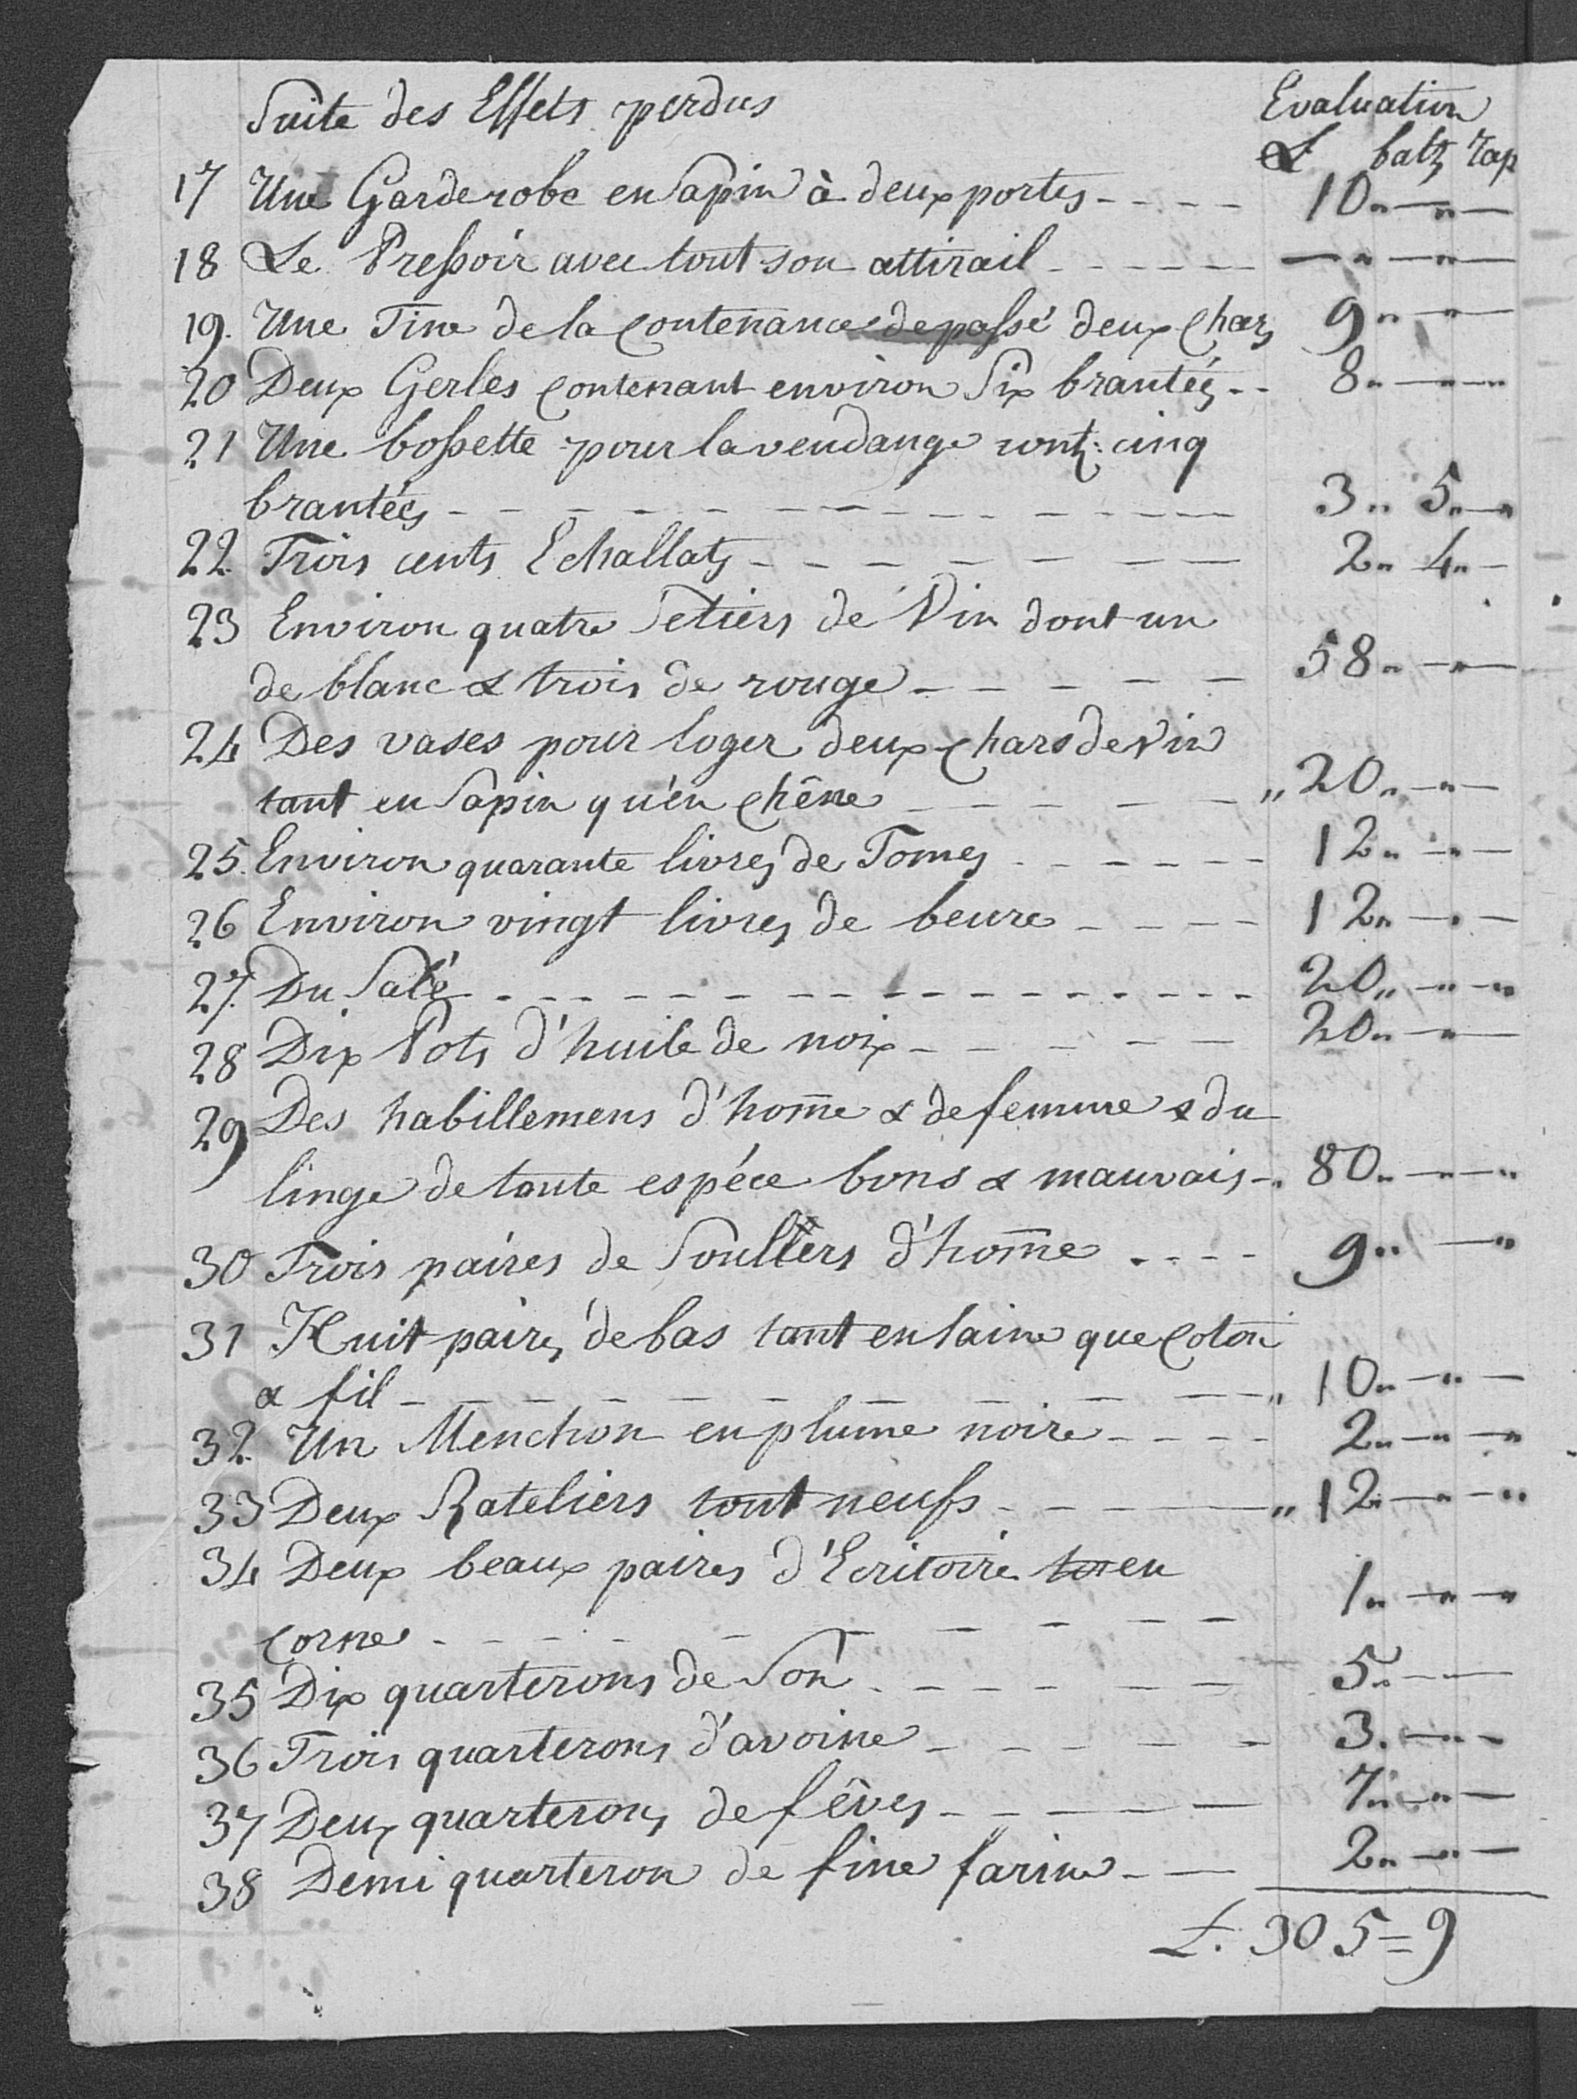 Suite des Effets perdus Evaluation
L batz rap
17 Une Garderobe en Sapin à deux portes - - - - - 10 " — " —
18 Le Pressoir avec tout son attirail - - - - - - — " — " —
19. Une Tine de la Contenance de passé deux Chars 9 " — " —
20 Deux Gerles Contenant environ Six brantées - - 8 " — " — "
21 Une bossette pour la vendange cont: cinq
brantées - - - - - - - - - - 3 " 5 " — "
22. Trois cents Echallats - - - - - - - 2 " 4 " —
23 Environ quatre Setiers de Vin dont un
de blanc & trois de rouge - - - - - 58 " — " —
24 Des vases pour loger deux Chars de Vin
tant en Sapin qu'en Chêne - - - - - " 20 " — " —
25. Environ quarante livres de Tomes - - - - - - 12 " — " —
26 Environ vingt livres de beure - - - - 12 " — " —
27. Du Salé - - - - - - - - - - - - 20 " — " — "
28 Dix Pots d'huile de noix - - - - - 20 " — " —
29 Des habillemens d'hom̄e & de femme & du
linge de toute espéce bons & mauvais - " 80 " — " — "
30 Trois paires de Soulliers d'hom̄e - - - - 9 " — "
31 Huit paires de bas tant en laine que Coton
& fil - - - - - - - - - " 10 " — " —
32. Un Menchon en plume noire - - - - 2 " — " — "
33 Deux Rateliers tout neufs - - - - " 12 " — " — "
34 Deux beaux paires d'Ecritoire en
Corne - - - - - - - - 1 " — " — "
35 Dix quarterons de Son - - - - - - 5 " — —
36 Trois quarterons d'avoine - - - - - 3 . — " —
37 Deux quarterons de fêves - - - - - 7 " — " —
38 Demi quarteron de fine farine - - 2 " — " —
L. 305 = 9